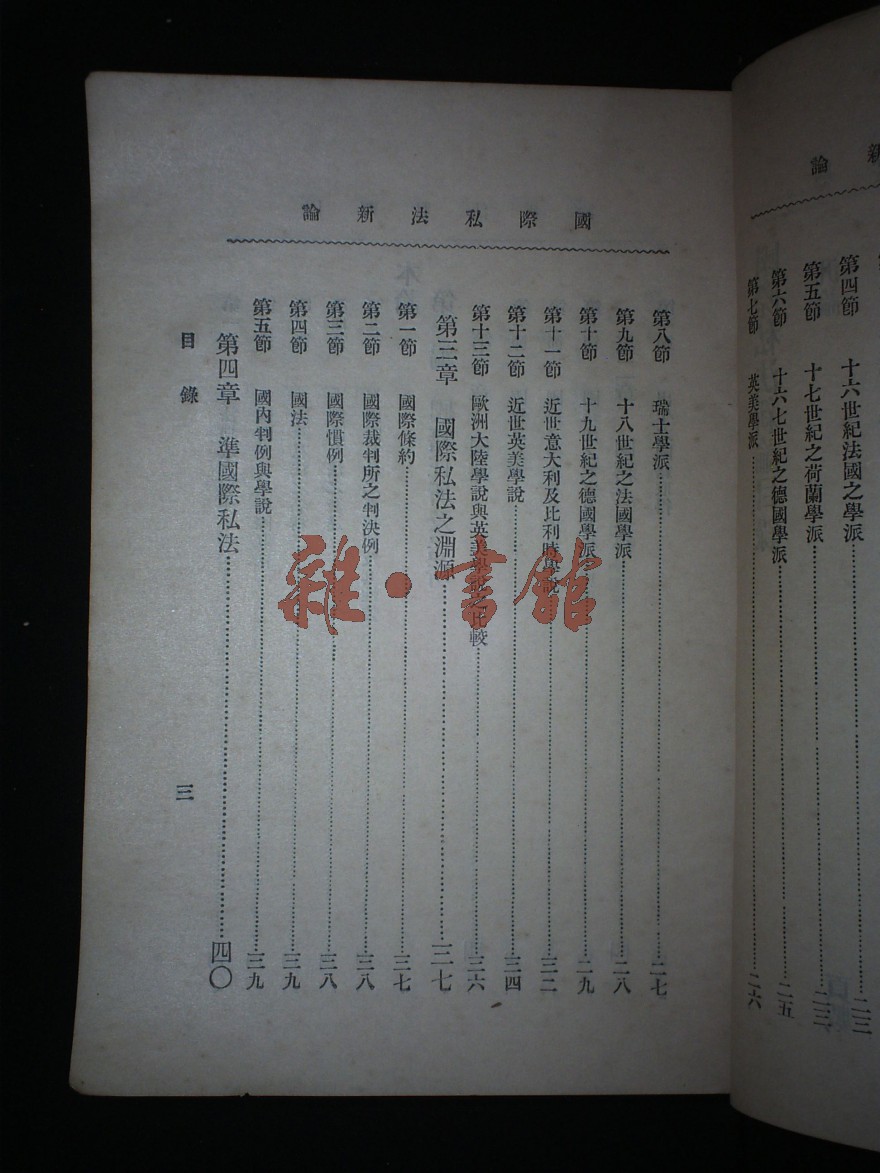 新論
第四節 十六世紀法國之學派……二三
第五節 十七世紀之荷蘭學派……二三
第六節 十六七世紀之德國學派……二五
第七節 英美學派……二六
國際私法新論
第八節 瑞士學派……二七
第九節 十八世紀之法國學派……二八
第十節 十九世紀之德國學派……二九
第十一節 近世意大利及比利時學說……三二
第十二節 近世英美學說……三四
第十三節 歐洲大陸學說與英美學說之比較……三六
第三章 國際私法之淵源……三七
第一節 國際條約……三七
第二節 國際裁判所之判決例……三八
第三節 國際慣例……三八
第四節 國法……三九
第五節 國內判例與學說……三九
第四章 準國際私法……四〇
目錄 三
雜·書館